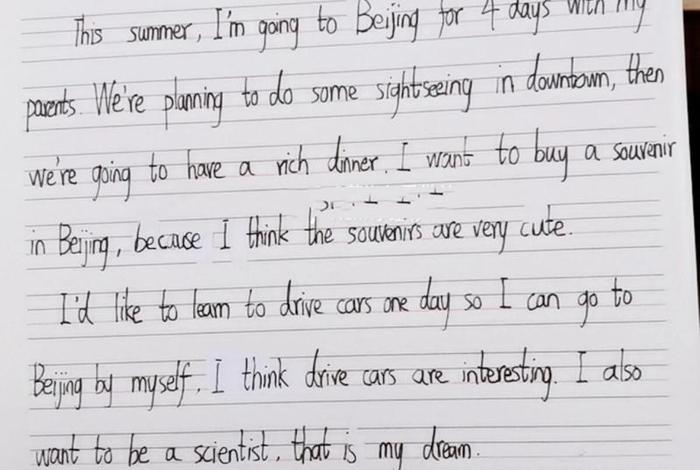 This summer, I'm going to Beijing for 4 days with my
parents. We're planning to do some sightseeing in downtown, then
we're going to have a rich dinner. I want to buy a souvenir
in Beijing, because I think the souvenirs are very cute.
I'd like to learn to drive cars one day so I can go to
Beijing by myself. I think drive cars are interesting. I also
want to be a scientist, that is my dream.